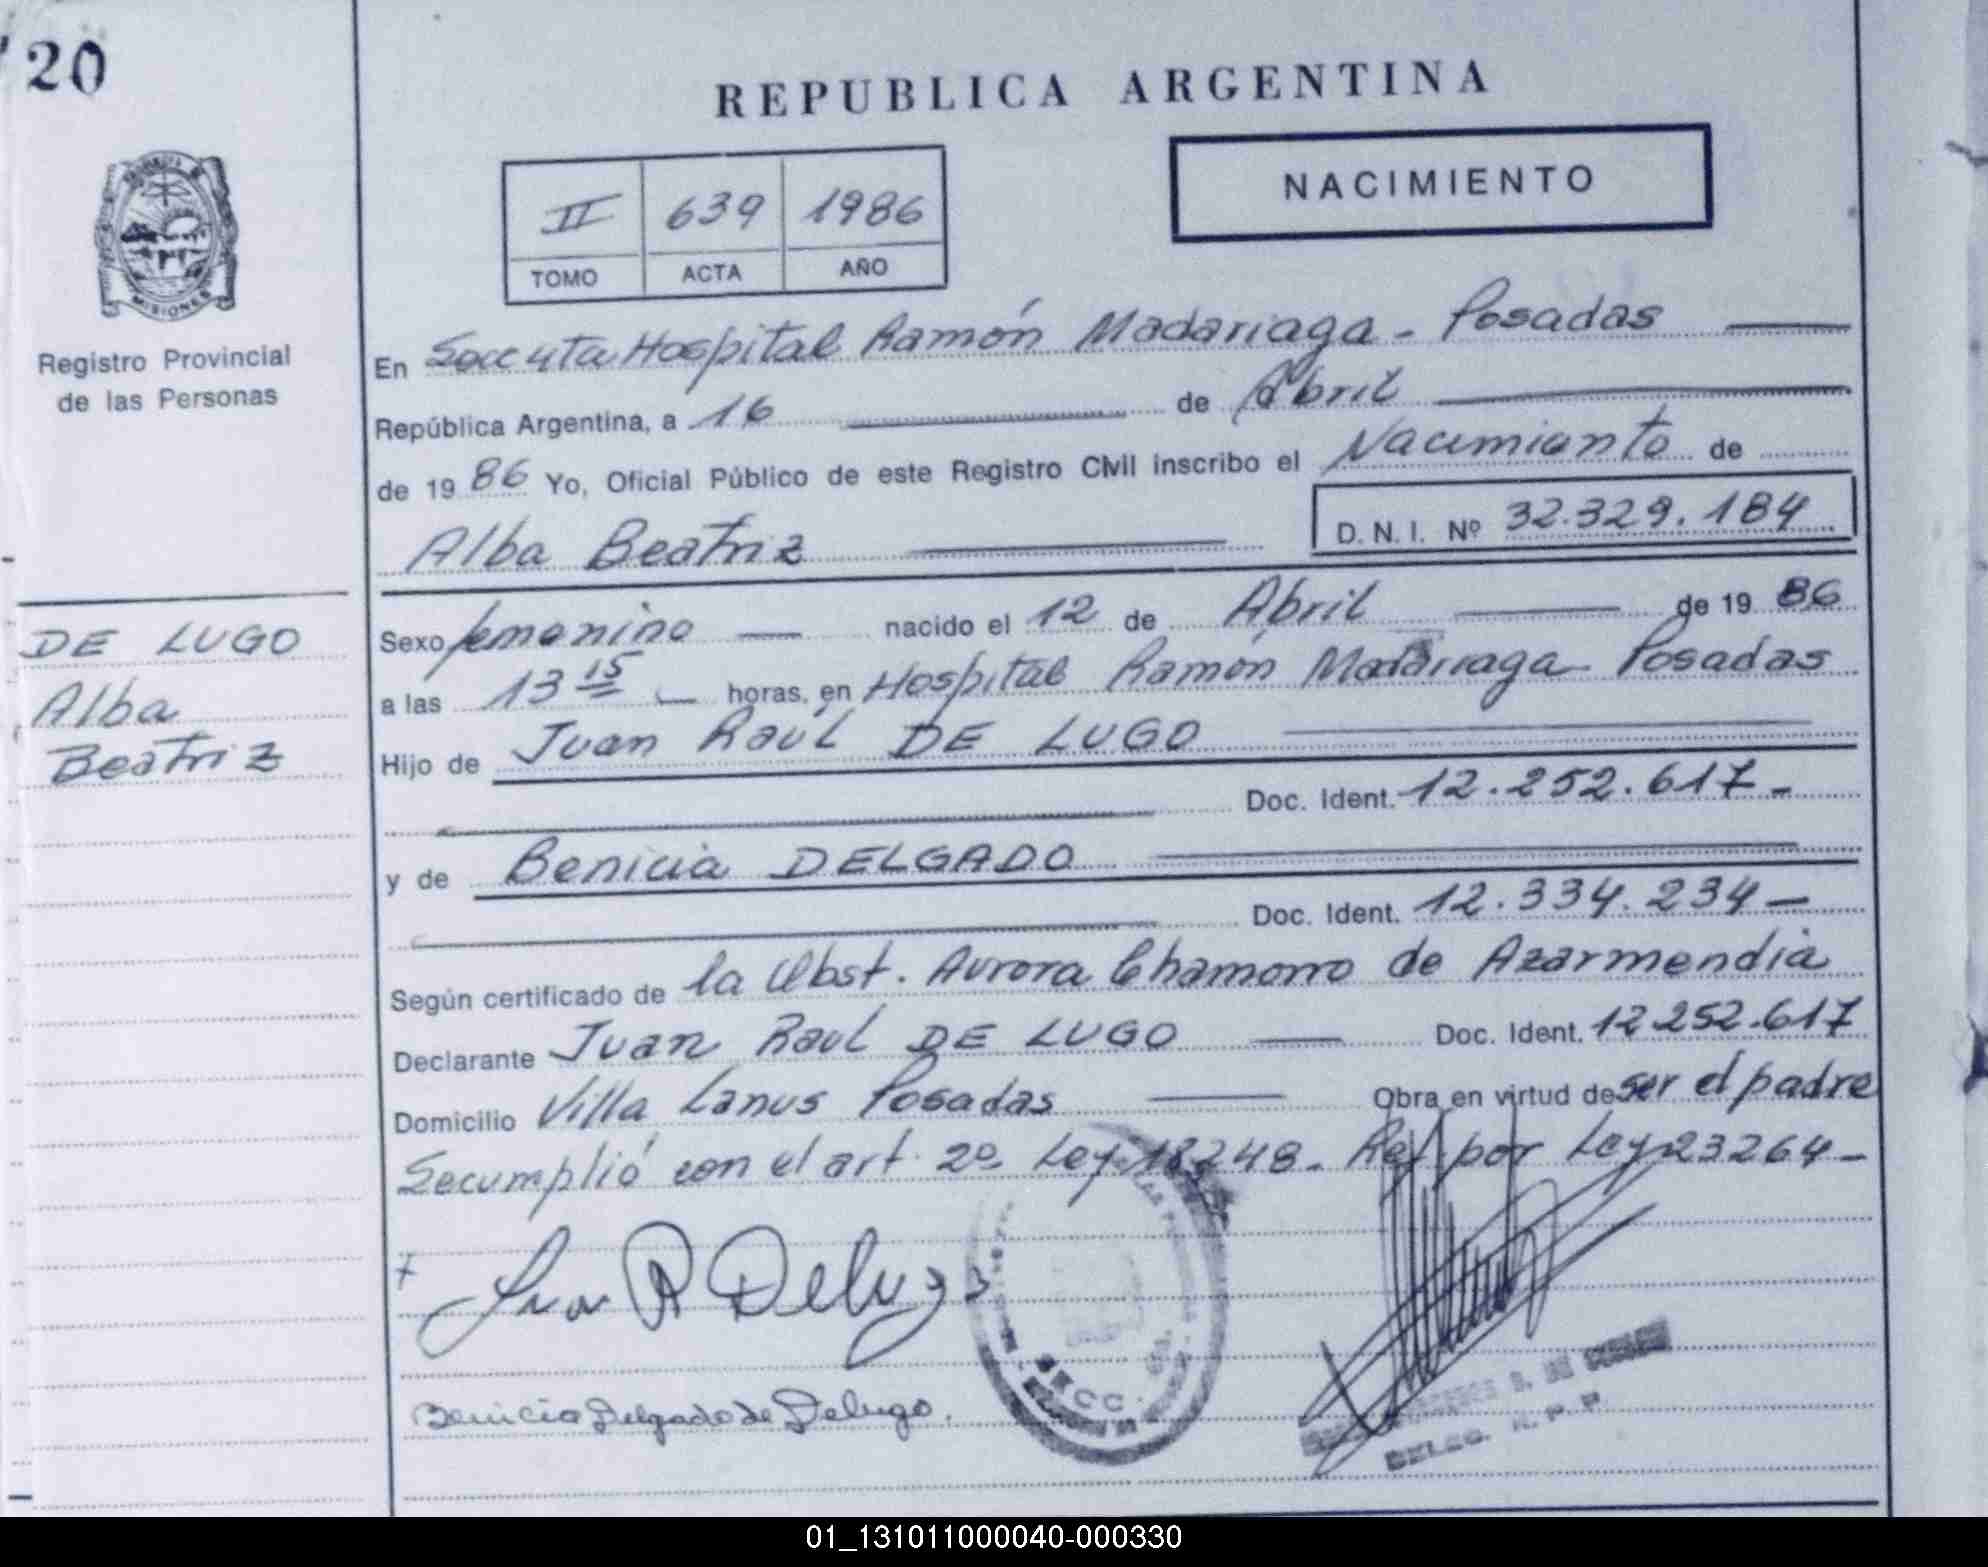 20
REPUBLICA ARGENTINA
NACIMIENTO
II 639 1986
TOMO ACTA AÑO
MISIONES
Registro Provincial
de las Personas
En Secc 4ta Hospital Ramón Madariaga - Posadas
República Argentina, a 16 de Abril
de 1986 Yo, Oficial Público de este Registro Civil inscribo el Nacimiento de
Alba Beatriz D. N. I. Nº 32.329.184
DE LUGO
Alba
Beatriz
Sexo femenino nacido el 12 de Abril de 19 86
a las 13 15 horas, en Hospital Ramón Madariaga Posadas
Hijo de Juan Raúl DE LUGO
Doc. Ident. 12.252.617-
y de Benicia DELGADO
Doc. Ident. 12.334.234-
Según certificado de la Obst. Aurora Chamorro de Azarmendia
Declarante Juan Raul DE LUGO Doc. Ident. 12252.617
Domicilio Villa Lanus Posadas Obra en virtud de ser el padre
Se cumplió con el art. 2º Ley 18248. Ref. por Ley 23264-
Juan R Delugo
SECC.
Benicia Delgado de Delugo.
DELEG. R. P. P.
01_131011000040-000330